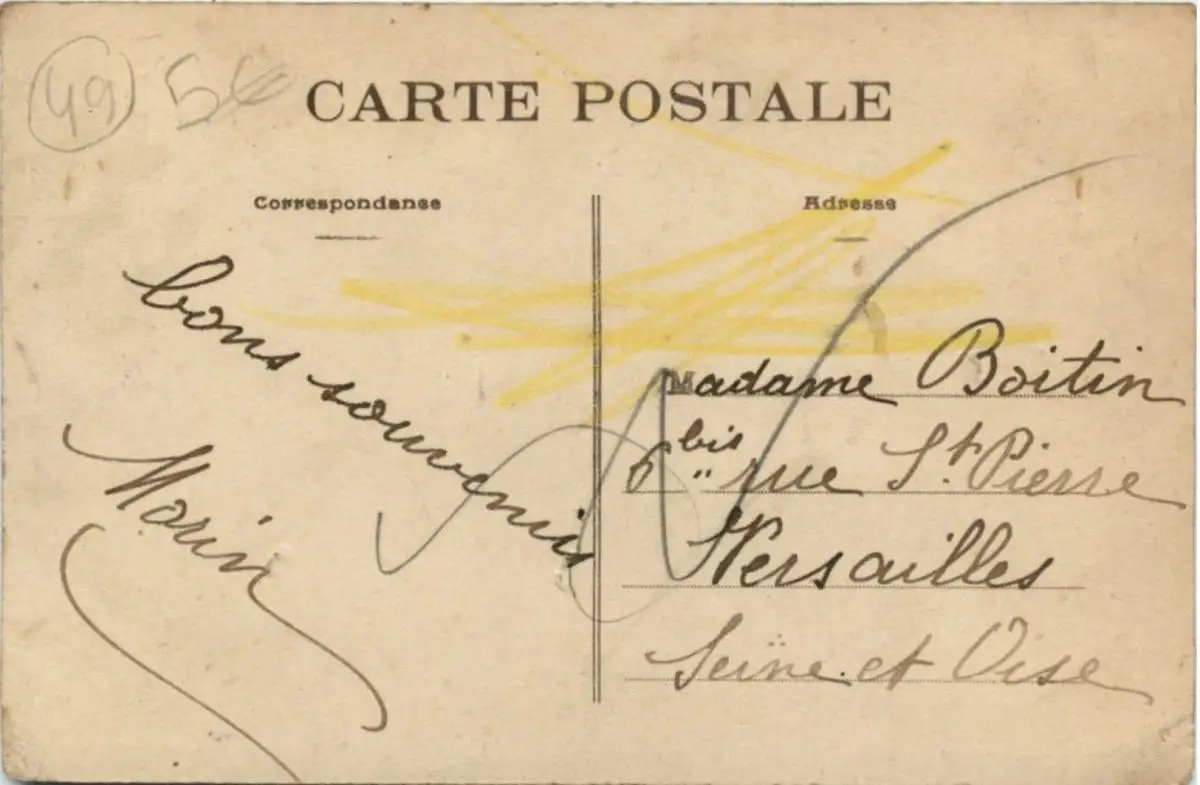 49 56
CARTE POSTALE
Correspondance
Adresse
bons souvenirs
Morin
Madame Boitin
6 bis " rue St. Pierre
Versailles
Seine et Oise